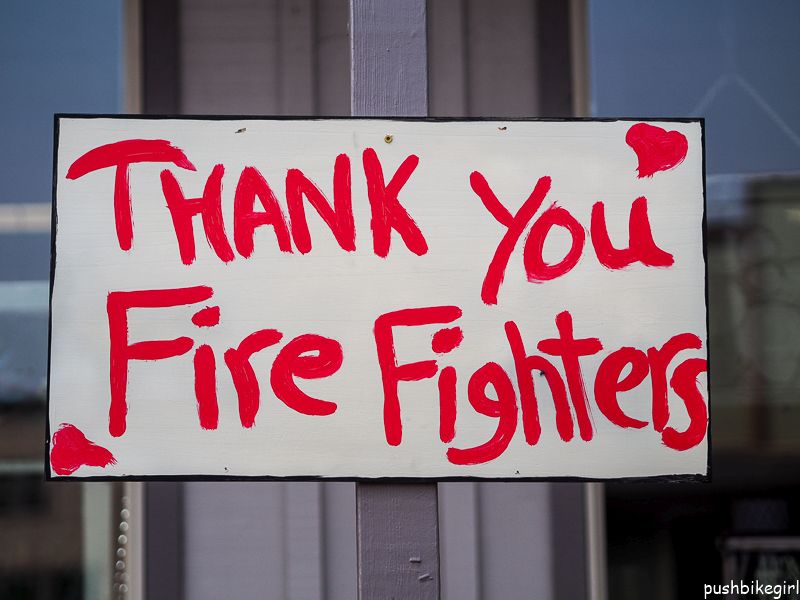 THANK YOU
Fire Fighters
pushbikegirl